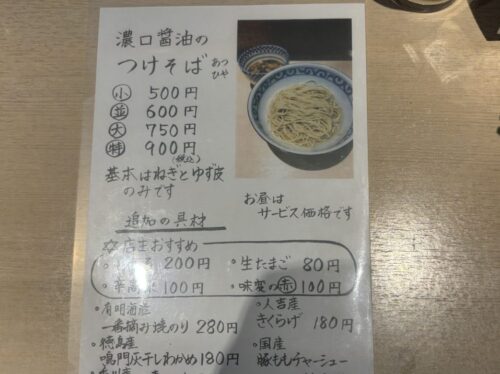 濃口醤油の
つけそば あつひや
小 500円
並 600円
大 750円
特 900円
(税込)
基本はねぎとゆず皮
のみです
お昼は
サービス価格です
追加の具材
店主おすすめ
200円
・生たまご 80円
100円
・味変の赤 100円
・有明海産
一番摘み焼のり 280円
・人吉産
きくらげ 180円
・徳島産
鳴門灰干しわかめ 180円
・国産
豚ももチャーシュー